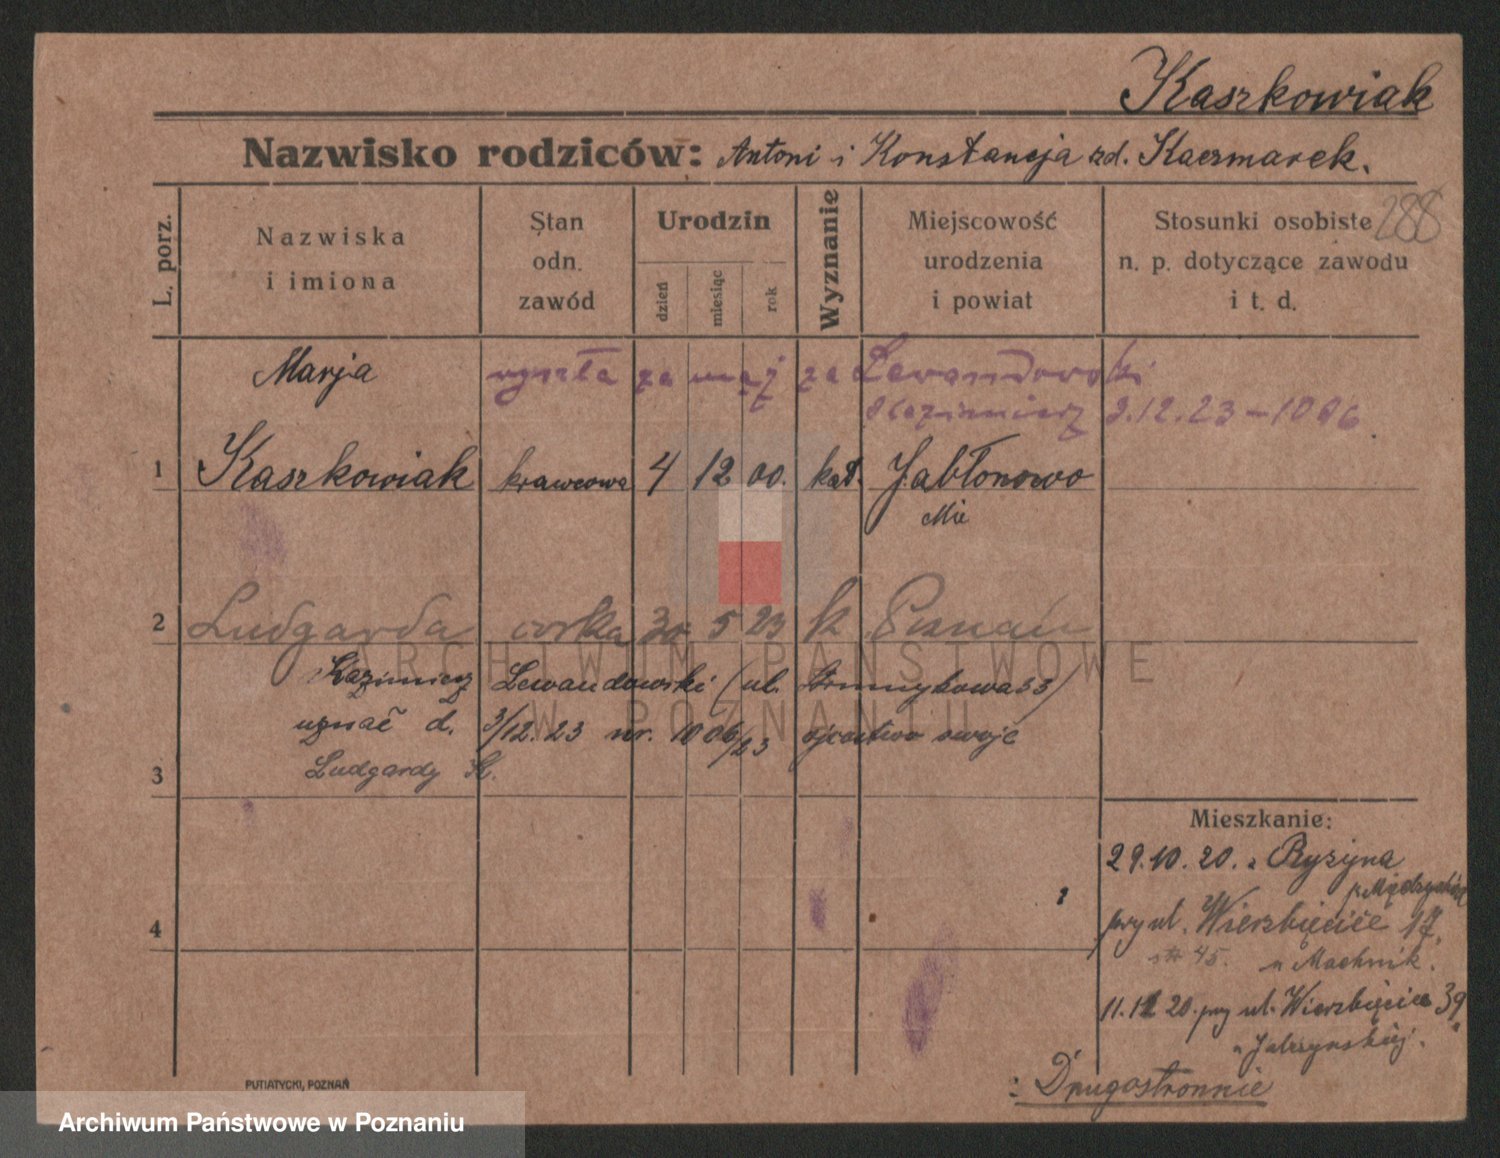 Kaszkowiak
Nazwisko rodziców: Antoni i Konstancja zd. Kaczmarek.
288
L. porz.
Nazwiska
i imiona
Stan
odn.
zawód
Urodzin
dzień
miesiąc
rok
Wyznanie
Miejscowość
urodzenia
i powiat
Stosunki osobiste
n. p. dotyczące zawodu
i t. d.
Marja wyszła za mąż za Lewandowski
Kazimierz 3.12.23 – 1006.
1 Kaszkowiak krawcowa 4 12 00. kat. Jabłonowo
2 Ludgarda córka 5 23 k Poznań
Kazimierz Lewandowski (ul.
uznał d. 3/12.23 nr. 1006/23 ojcostwo swoje
3 Ludgardy K.
4
Mieszkanie:
29.10.20. z Ryżyna
przy ul. Wierzbięcice 17.
45. u Machnik.
20. przy ul. Wierzbięcice 39
: Drugostronnie
PUTIATYCKI, POZNAŃ
ARCHIWUM PAŃSTWOWE
W POZNANIU
Archiwum Państwowe w Poznaniu